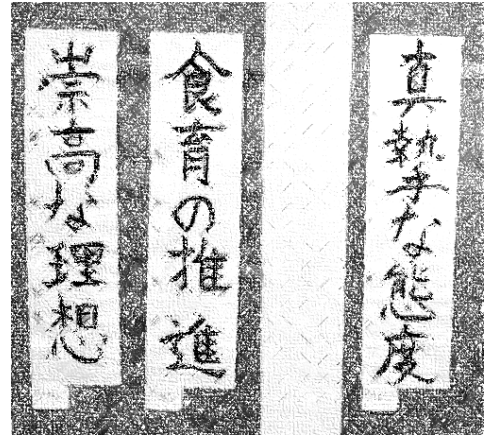 真摯な態度
食育の推進
崇高な理想